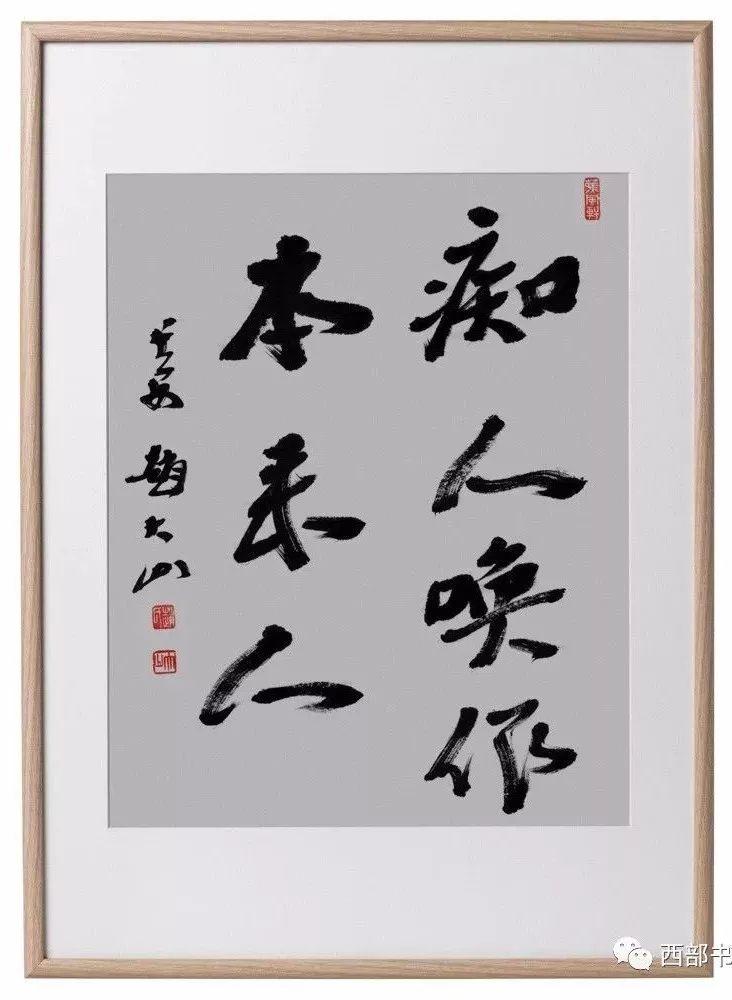 痴人唤作
本来人
长安 赵大山
西部书